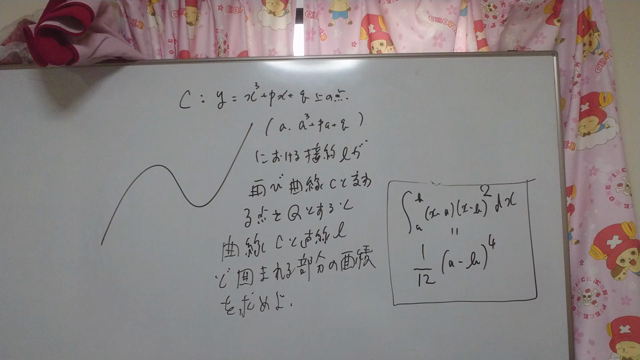 C : y = x³+px+q 上の点
(a, a³+pa+q)
における接線lが
再び曲線Cと交わ
る点をQとすると
曲線Cと直線l
で囲まれる部分の面積
を求めよ.
∫ₐᵇ (x-a)(x-b)² dx
=
1/12 (a-b)⁴